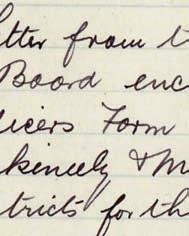 etter from t
Board enc
licers Form
kineely & M
tricts for th